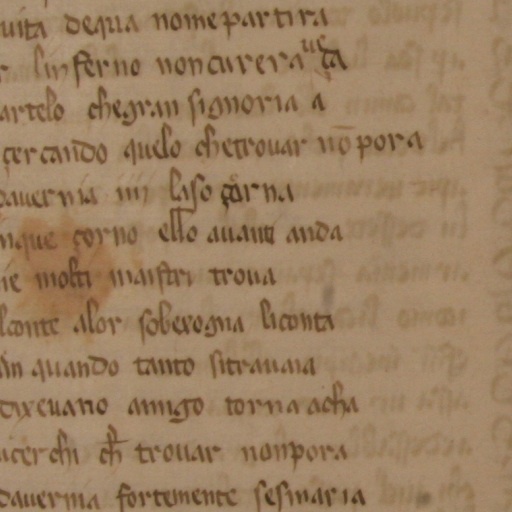 uita dequa nome partira
linferno non curera ueça
artelo chegran signoria a
çercando quelo chetrouar nō pora
dauernia iiii laso çorna
nque çorno ello auanti anda
ie molti maistri troua
lconte alor sobexogna liconta
in quando tanto sitrauaia
dixeuano amigo torna acha
icerchi ch trouar nonpora
dauernia fortemente sesmaria